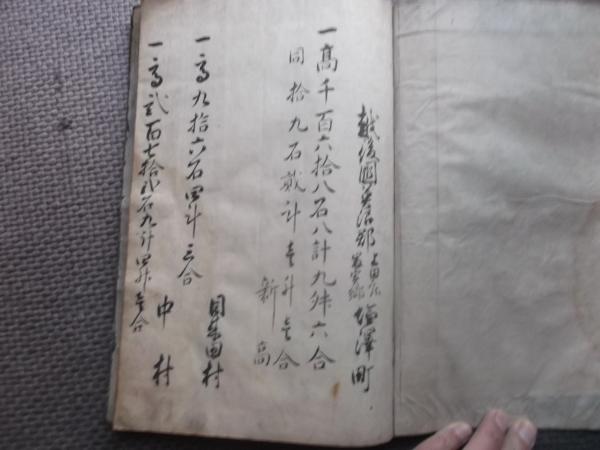 越後國魚沼郡 上田庄 塩澤町
一高千百六拾八石八斗九舛六合
同拾九石貳斗壱升壱合 新高
一高九拾六石四斗三合 目来田村
一高弐百七拾弐石九斗四升壱合 中村